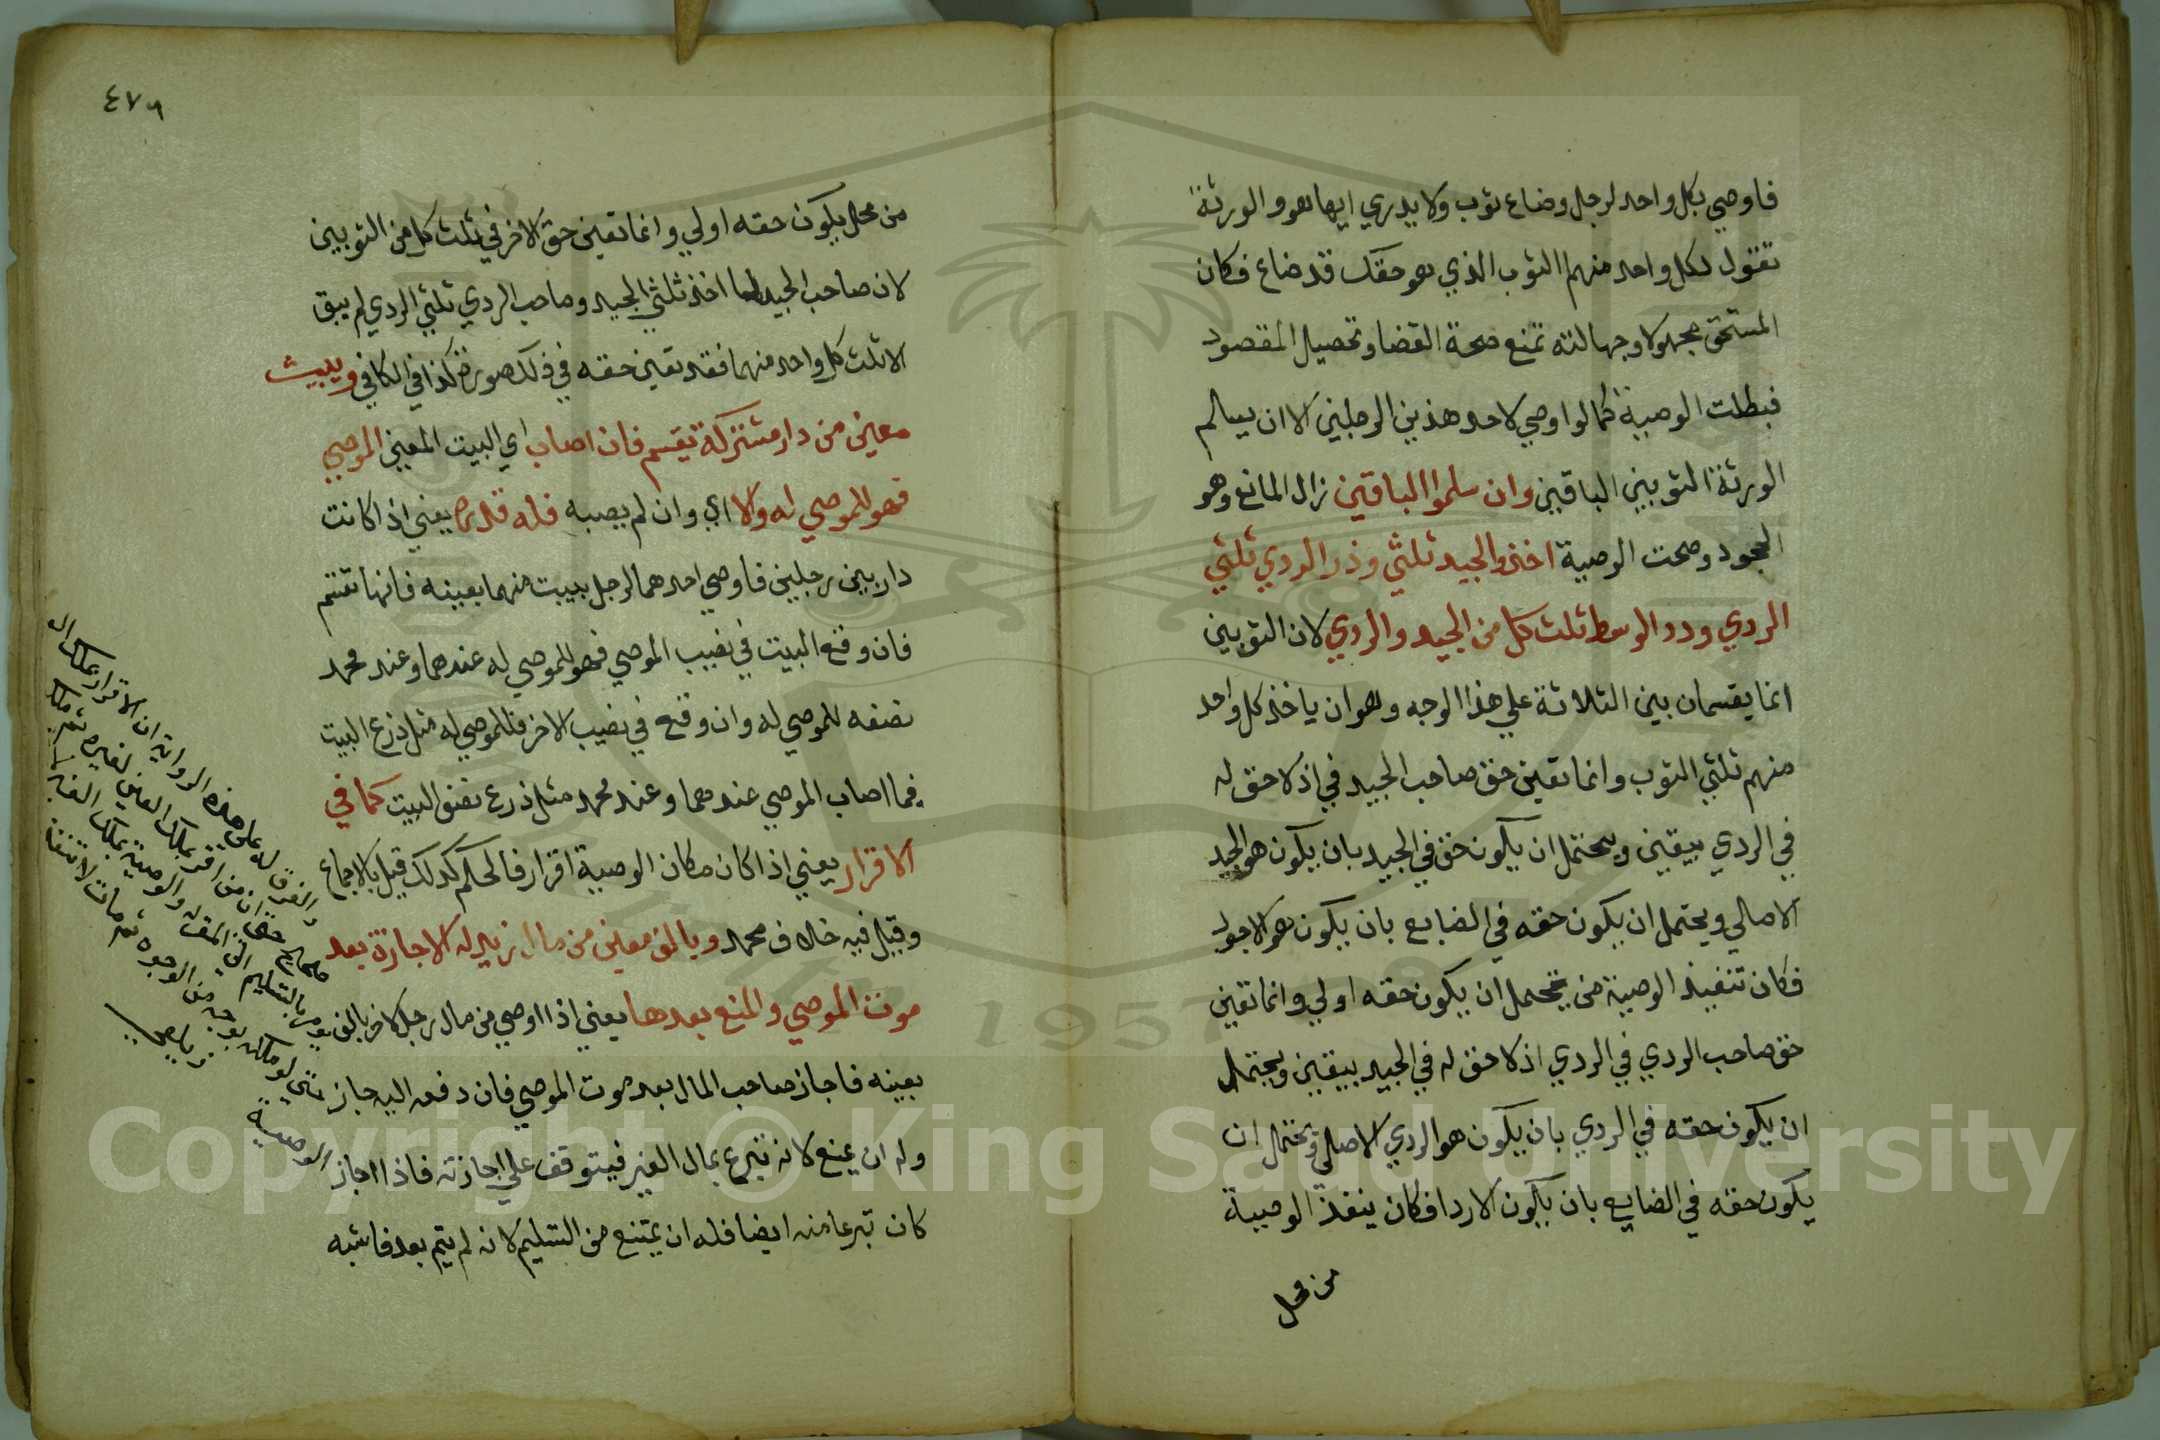 فاوصي بكل واحد لرجل وضاع ثوب ولا يدري ايها هو والورثة
تقول لكل واحد منهم الثوب الذي هو حقك قد ضاع فكان
المستحق مجهولا وجهالته تمنع صحة القضا وتحصيل المقصود
فبطلت الوصية كما لو اوصي لاحد هذين الرجلين الا ان يسلم
الورثة الثوبين الباقيين وان سلموا الباقين زال المانع وهو
الجحود وصحت الوصية اخذ والجيد ثلثي وذر الردي ثلثي
الردي ودد الوسط ثلث كل من الجيد والردي لان الثوبين
انما يقسمان بين الثلاثة علي هذا الوجه وهو ان ياخذ كل واحد
منهم ثلثي الثوب وانما تعين حق صاحب الجيد في اذ لا حق له
في الردي بيقين ويحتمل ان يكون حق في الجيد بان يكون هو الجيد
الاصلي ويحتمل ان يكون حقه في الضايع بان يكون هو الاجود
فكان تنفيذ الوصية من محتمل ان يكون حقه اولي وانما تعين
حق صاحب الردي في الردي اذ لا حق له في الجيد بيقين ويحتمل
ان يكون حقه في الردي بان يكون هو الردي الاصلي ويحتمل ان
يكون حقه في الضايع بان يكون الاردا فكان ينفذ الوصية
من محل
٤٧٩
من محل يكون حقه اولي وانما تعين حق الاخر في ثلث كل من الثوبين
لان صاحب الجيد لما اخذ ثلثي الجيد وصاحب الردي ثلثي الردي لم يبق
الا ثلث كل واحد منهما فقد تعين حقه في ذلك صورة كذا في الكافي وببيت
معين من دار مشتركة يقسم فان اصاب اي البيت المعين الموصي
فهو للموصي له والا اي وان لم يصبه فله قدره يعني اذا كانت
دار بين رجلين فاوصي احدهما لرجل ببيت منهما بعينه فانها تقسم
فان وقع البيت في نصيب الموصي فهو للموصي له عندهما وعند محمد
نصفه للموصي له وان وقع في نصيب الاخر فللموصي له مثل ذرع البيت
فيما اصاب الموصي عندهما وعند محمد مثل ذرع نصف البيت كما في
الاقرار يعني اذا كان مكان الوصية اقرار فالحكم كذلك قيل بالاجماع
وقيل فيه خلاف محمد وبالف معين من مال زيد له الاجازة بعد
موت الموصي والمنع بعدها يعني اذا اوصي من مال رجل لاخر بالف
بعينه فاجاز صاحب المال بعد موت الموصي فان دفعه اليه جاز
وله ان يمنع لانه تبرع بمال الغير فيتوقف علي اجازته فاذا اجاز
كان تبرعا منه ايضا فله ان يمتنع من التسليم لانه لم يتم بعد فاشبه
والفرق له علي هذه الرواية ان الاقرار بملك ال
صحيح حتي ان من اقر بملك العين لغيره ثم ملكه
يومر بالتسليم الي المقر له والوصية بملك الغير لا
حتي لو ملكه بوجه من الوجوه ثم مات لا تنفذ
الوصية زيلعي
Copyright © King Saud University
1957